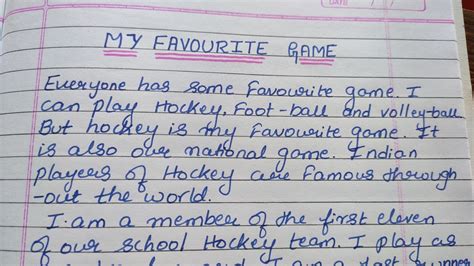 DATE / /
MY FAVOURITE GAME
Everyone has some favourite game. I
can play Hockey, Foot-ball and volley-ball
But hockey is my favourite game. It
is also our national game. Indian
Players of Hockey are famous through
-out the world.
I am a member of the first eleven
of our school Hockey team. I play as
I am a fast runner